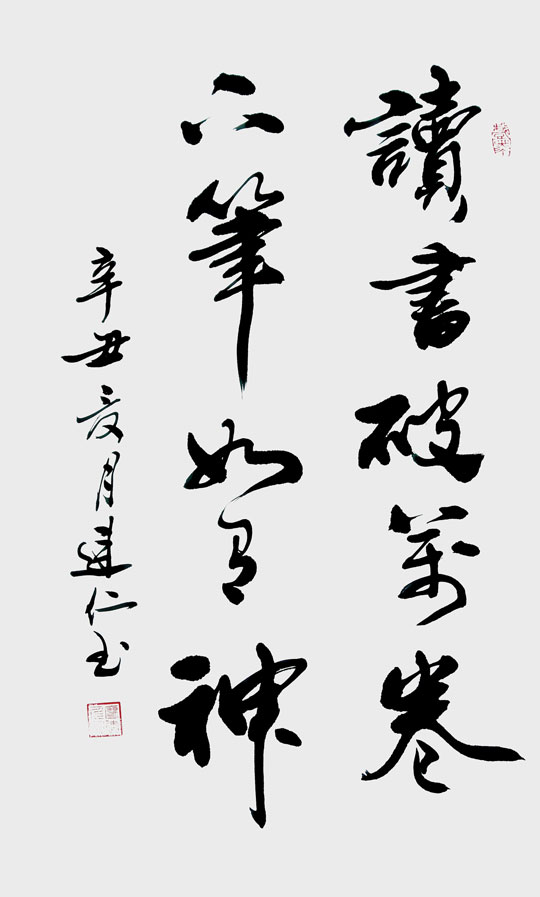 讀書破萬卷
下筆如有神
辛丑夏月建仁书